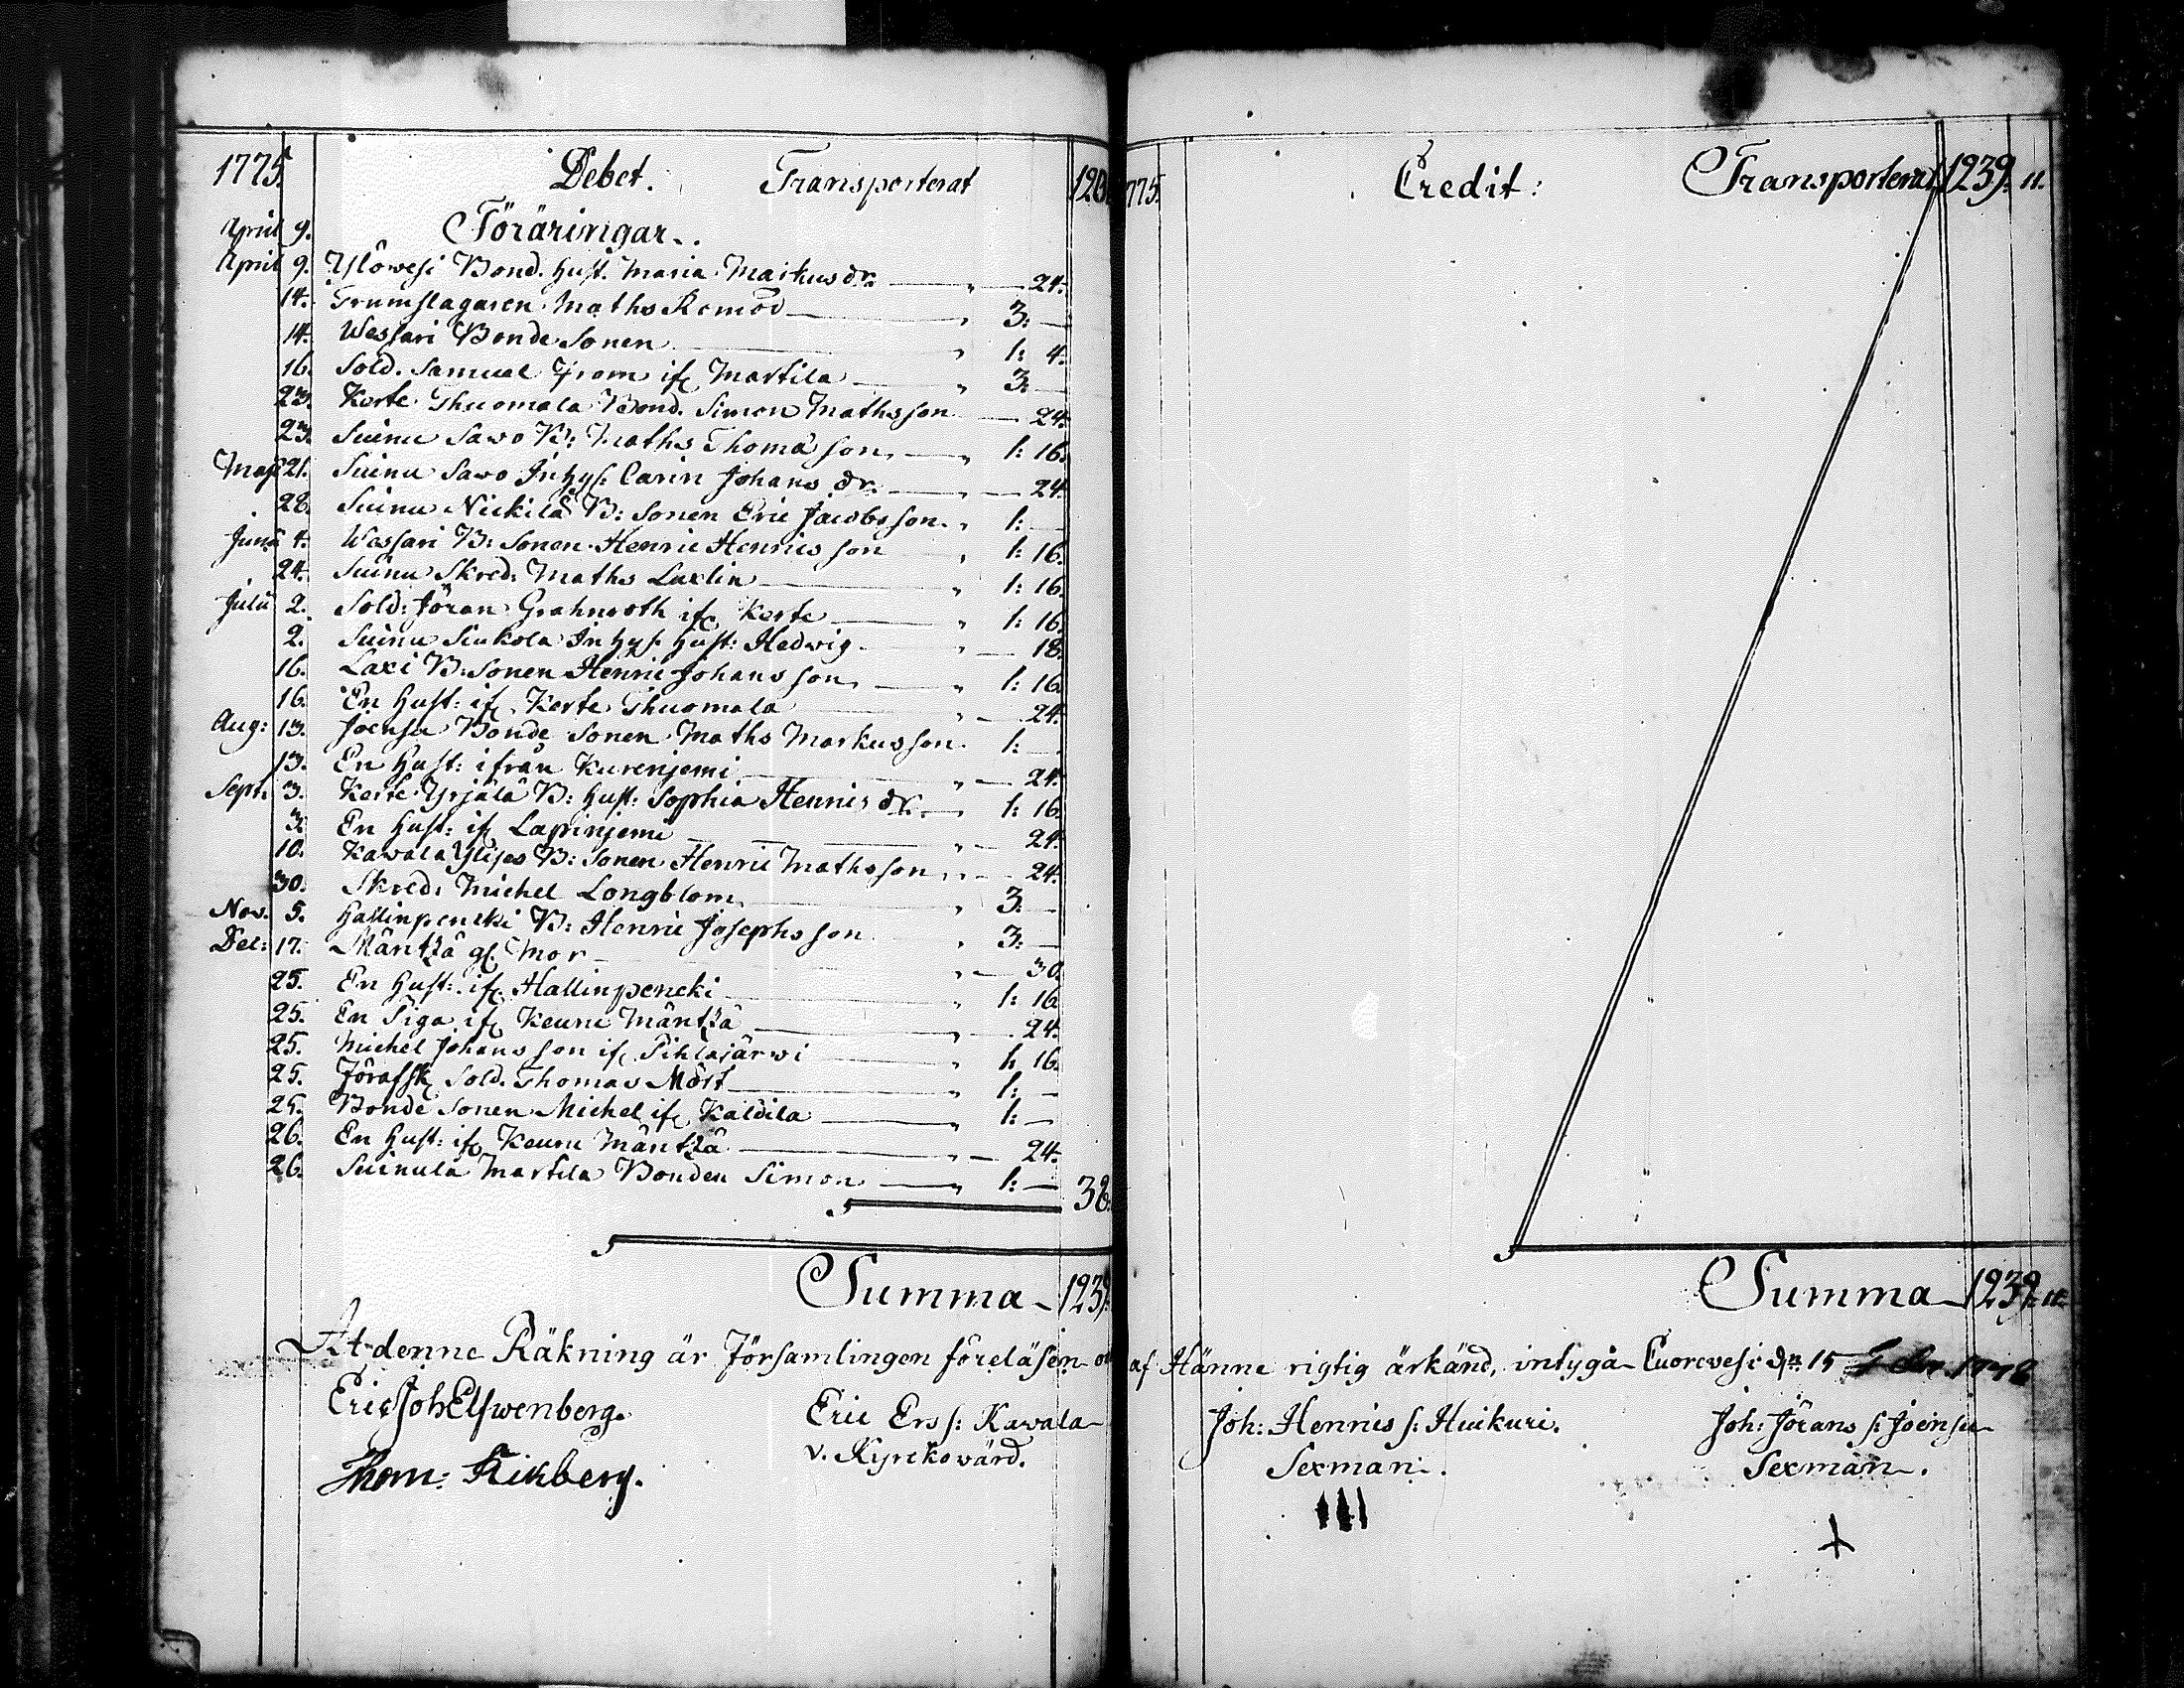 1775. Debet. Transporterat 120
April 9. Föräringar.
April 9. Ylöwesi Bond. Hust. Maria Markus dr. " — 24.
14. Trumslagaren Maths Remod " 3: —
14. Wessari Bonde Sonen " 1: 4.
16. Sold. Samuel From if. Martila " 3: —
23. Kerte Thuomala Bond. Simon Mathsson — 24.
23. Suinu Sawo B: Maths Thomasson " 1: 16.
Maji 21. Suinu Sawo Inhys. Carin Johans dr. " — 24.
28. Suinu Nickilä B: Sonen Eric Jacobsson " 1: —
Junii 4. Wessari B: Sonen Henric Henricsson " 1: 16.
24. Suinu Skred: Maths Laxlin " 1: 16.
Julii 2. Sold: Jöran Grahnroth if. Kerte " 1: 16.
2. Suinu Siukola Inhys. Hust: Hedwig " — 18.
16. Laxi B: Sonen Henric Johansson " 1: 16.
16. En Hust: if. Kerte Thuomala " — 24.
Aug: 13. Joensu Bonde Sonen Maths Markusson 1: —
13. En Hust: ifrån Kurenjemi " — 24.
Sept. 3. Kerte Yrjälä B: Hust: Sophia Henrics dr. " 1: 16.
3. En Hust: if. Lapinjemi " — 24.
10. Kawala Ylijes B: Sonen Henric Mathsson " — 24.
30. Skred: Michel Longblom " 3: —
Nov. 5. Hallinpencki B: Henric Josephsson " 3: —
Dec: 17. Mäntzä gl. Mor " — 30.
25. En Hust: if. Hallinpencki " 1: 16.
25. En Piga if. Keuru Mäntzä " — 24.
25. Michel Johansson if. Pihlajärwi " 1: 16.
25. Sold. Thomas Mört " 1: —
25. Bonde Sonen Michel if. Kaldila " 1: —
26. En Hust: if. Keuru Mäntzä " — 24.
26. Suinula Martila Bonden Simon " 1: — 38.
Summa 1239.
At denne Räkning är Församlingen föreläsen
Eric Joh Elfwenberg.
Thom: Kikberg.
Eric Ers s: Kawala
v. Kyrkowärd.
775. Credit: Transporterat 1239: 11.
Summa 1239: 11.
af Hänne rigtig ärkänd, intygå Cuorevesi dn 15
Joh: Henrics s: Huikuri.
Sexman.
Joh: Jörans s: Joensu
Sexman.